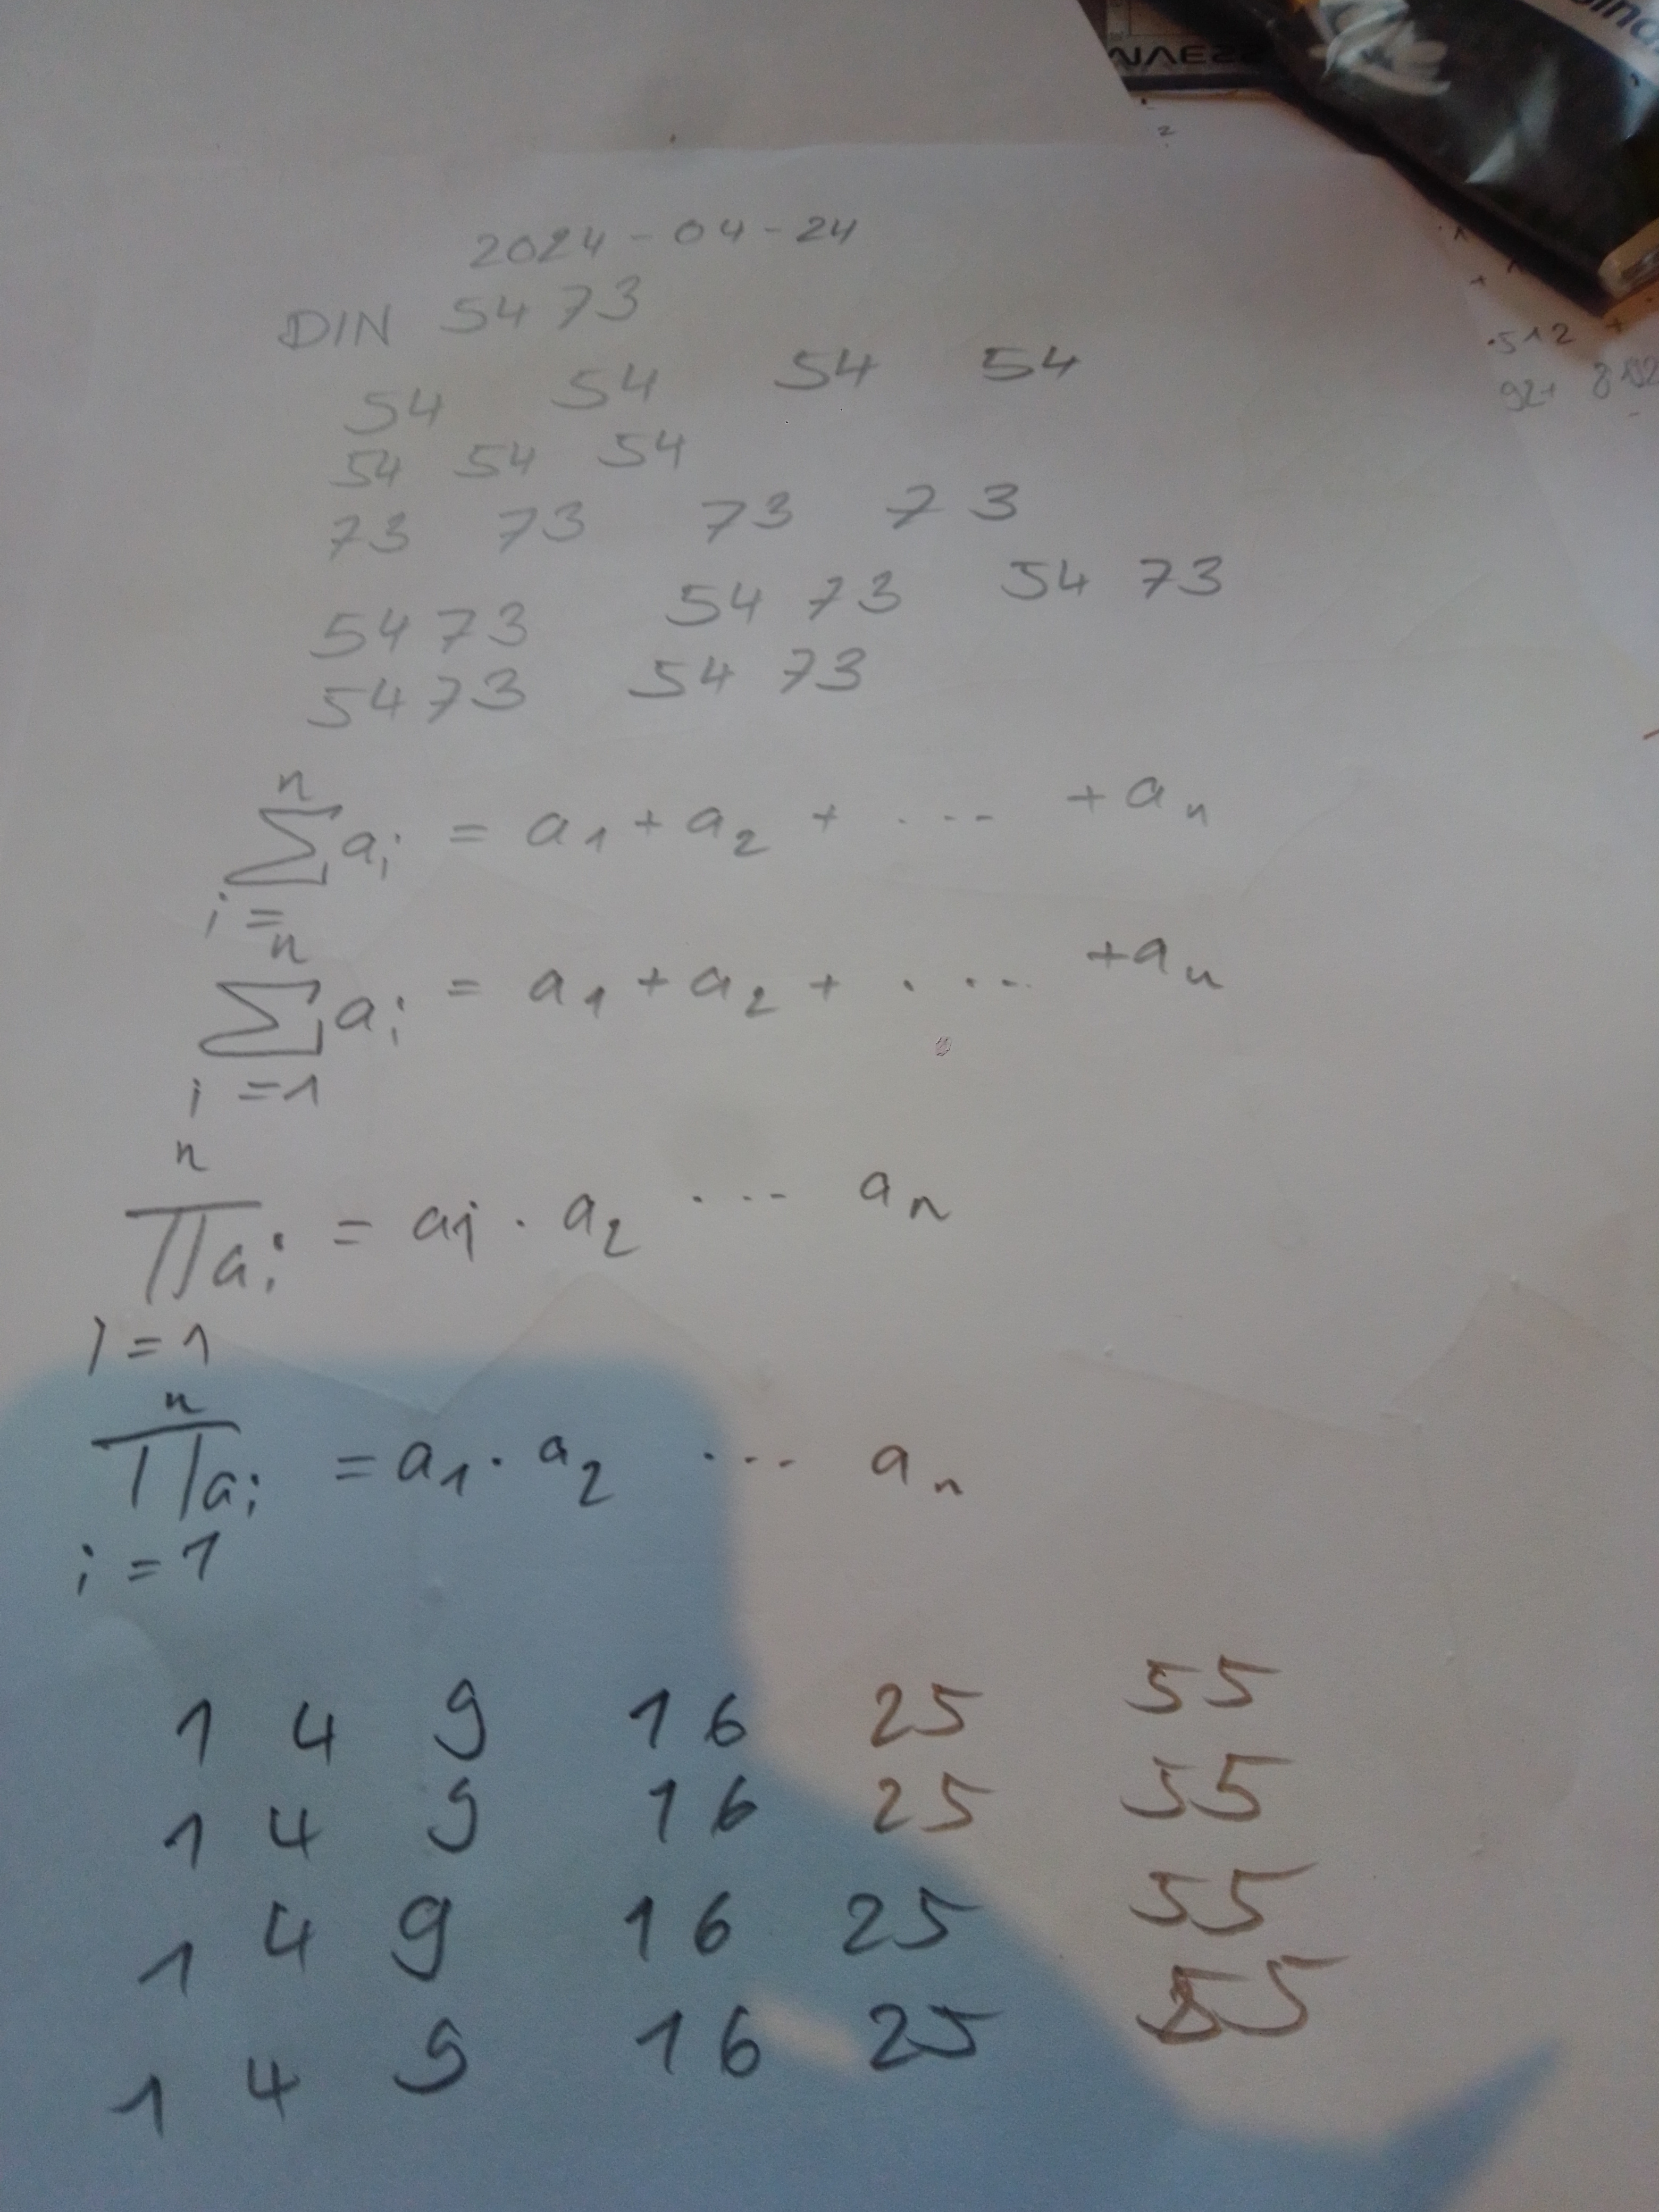 2024-04-24
DIN 5473
54 54 54 54
54 54 54
73 73 73 73
5473 54 73 54 73
5473 54 73
n
∑ aᵢ = a₁ + a₂ + ... + aₙ
i =
n
∑ aᵢ = a₁ + a₂ + ... + aₙ
i = 1
n
∏ aᵢ = a₁ · a₂ ... aₙ
i = 1
n
∏ aᵢ = a₁ · a₂ ... aₙ
i = 1
1 4 9 16 25 55
1 4 9 16 25 55
1 4 9 16 25 55
1 4 9 16 25 55